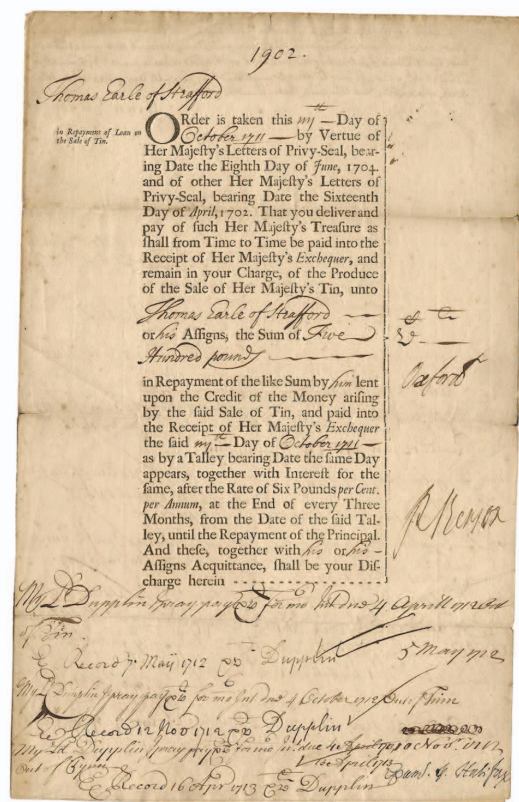 1902.
Thomas Earle of Strafford
in Repayment of Loan on
the Sale of Tin.
ORder is taken this Day of
October 1711 by Vertue of
Her Majeſty's Letters of Privy-Seal, bear-
ing Date the Eighth Day of June, 1704.
and of other Her Majeſty's Letters of
Privy-Seal, bearing Date the Sixteenth
Day of April, 1702. That you deliver and
pay of ſuch Her Majeſty's Treaſure as
ſhall from Time to Time be paid into the
Receipt of Her Majeſty's Exchequer, and
remain in your Charge, of the Produce
of the Sale of Her Majeſty's Tin, unto
Thomas Earle of Strafford
or his Aſſigns, the Sum of Five
Hundred pounds
in Repayment of the like Sum by him lent
upon the Credit of the Money ariſing
by the ſaid Sale of Tin, and paid into
the Receipt of Her Majeſty's Exchequer
the ſaid Day of October 1711
as by a Talley bearing Date the ſame Day
appears, together with Intereſt for the
ſame, after the Rate of Six Pounds per Cent.
per Annum, at the End of every Three
Months, from the Date of the ſaid Tal-
ley, until the Repayment of the Principal.
And theſe, together with his or his
Aſſigns Acquittance, ſhall be your Diſ-
charge herein
Oxford
R Benson
My Ld Dupplin pray pay for Int due 4 Aprill 1712 out
of Tin.
5 May 1712
Record 7 May 1712 Dupplin
My Ld Dupplin pray pay for Int due 4 October 1712 out of Tinn
Record 12 Nov 1712 Dupplin
My Ld Dupplin pray pay for Int due
out of
Record 16 Apr 1713 Dupplin
Halifax